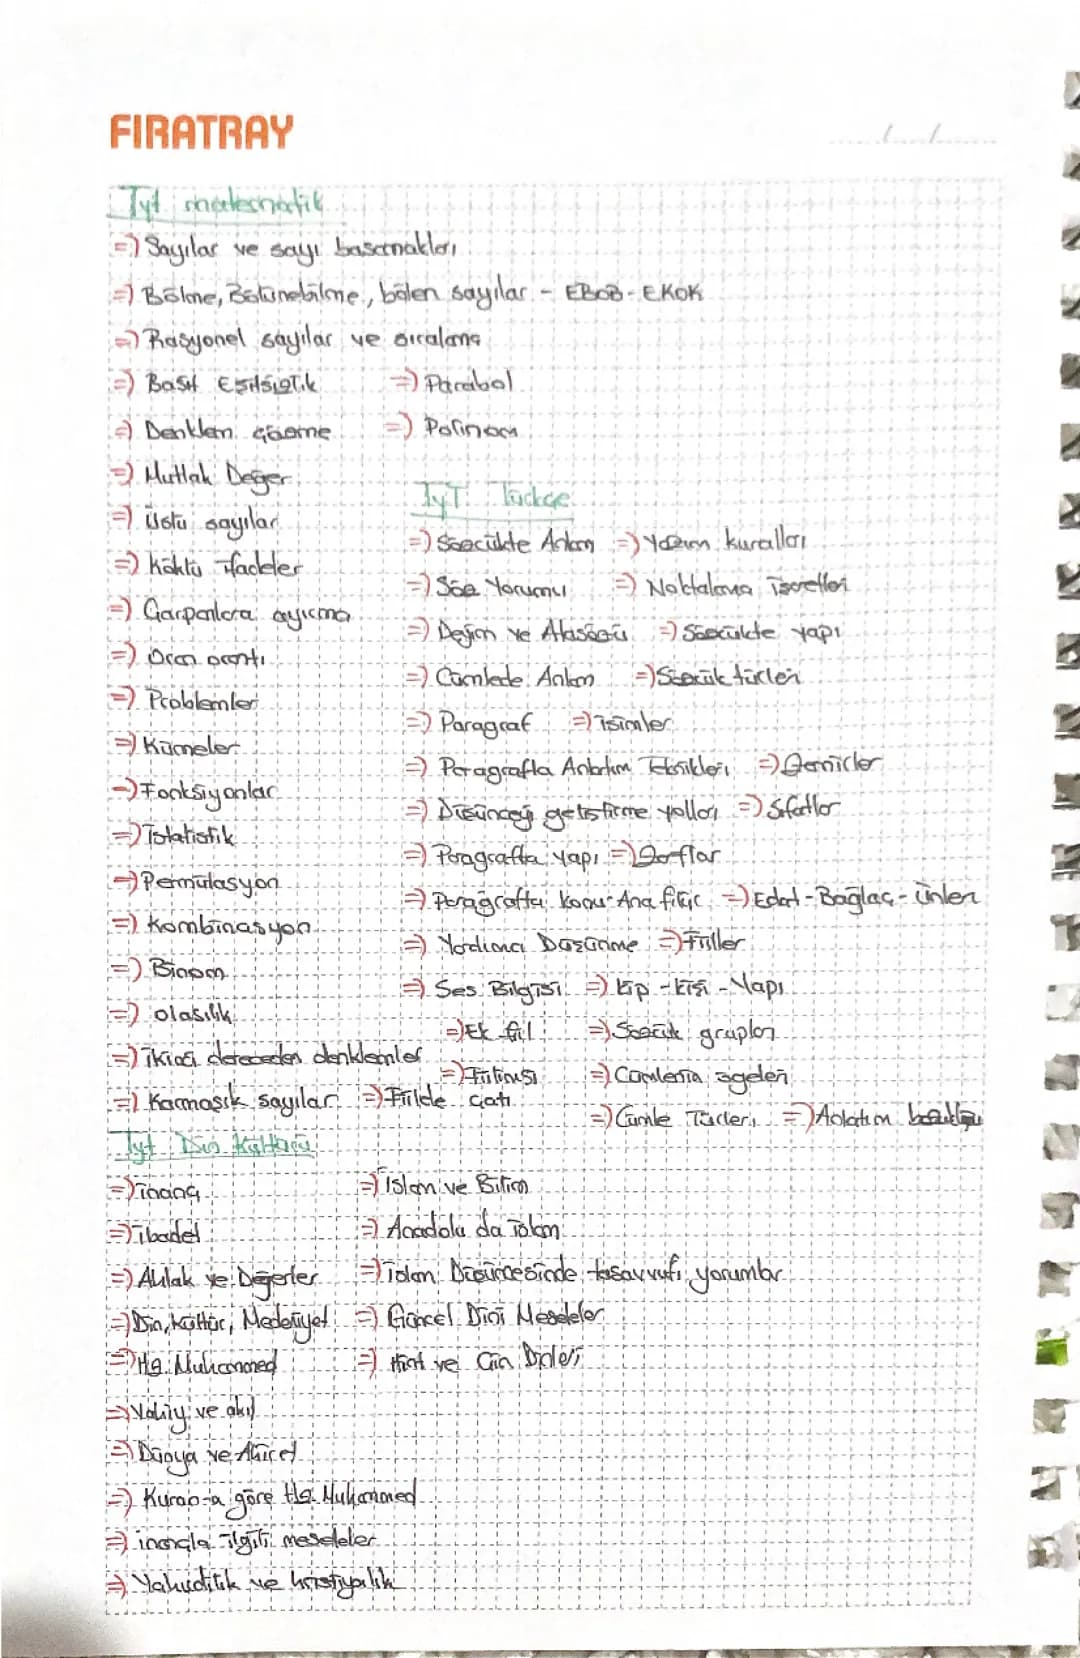 FIRATRAY
Tyt matematik
=) Sayılar ve sayı basamakları
=) Bölme, Bölünebilme, bölen sayılar - EBOB - EKOK
=) Rasyonel sayılar ve sıralama
=) Basit Eşitsizlik
=) Denklem çözme
=) Mutlak Değer
=) Üslü sayılar
=) Köklü ifadeler
=) Çarpanlara ayırma
=) Oran orantı
=) Problemler
=) Kümeler
=) Fonksiyonlar
=) İstatistik
=) Permütasyon
=) Kombinasyon
=) Binom
=) olasılık
=) ikinci dereceden denklemler
=) Karmaşık sayılar
=) Parabol
=) Polinom
TYT Türkçe
=) Sözcükte Anlam =) Yazım kuralları
=) Söz Yorumu =) Noktalama işaretleri
=) Deyim ve Atasözü =) Sözcükte yapı
=) Cümlede Anlam =) Sözcük türleri
=) Paragraf =) isimler
=) Paragrafta Anlatım Teknikleri =) Zamirler
=) Düşünceyi geliştirme yolları =) Sıfatlar
=) Paragrafta yapı =) Zarflar
=) Paragrafta Konu - Ana fikir =) Edat - Bağlaç - ünlem
=) Yardımcı Düşünme =) Fiiller
=) Ses Bilgisi =) kip - kişi - Yapı
=) Ek fiil =) Sözcük grupları
=) Fiilimsi =) Cümlenin ögeleri
=) Fiilde çatı =) Cümle Türleri =) Anlatım bozukluğu
Tyt Din Kültürü
=) inanç =) İslam ve Bilim
=) ibadet =) Anadolu da islam
=) Ahlak ve Değerler =) islam Düşüncesinde tasavvufi yorumlar
=) Din, Kültür, Medeniyet =) Güncel Dini Meseleler
=) Hz. Muhammed =) Hint ve Çin Dinleri
=) Vahiy ve akıl
=) Dünya ve Ahiret
=) Kuran-a göre Hz. Muhammed
=) inançla ilgili meseleler
=) Yahudilik ve hristiyalik